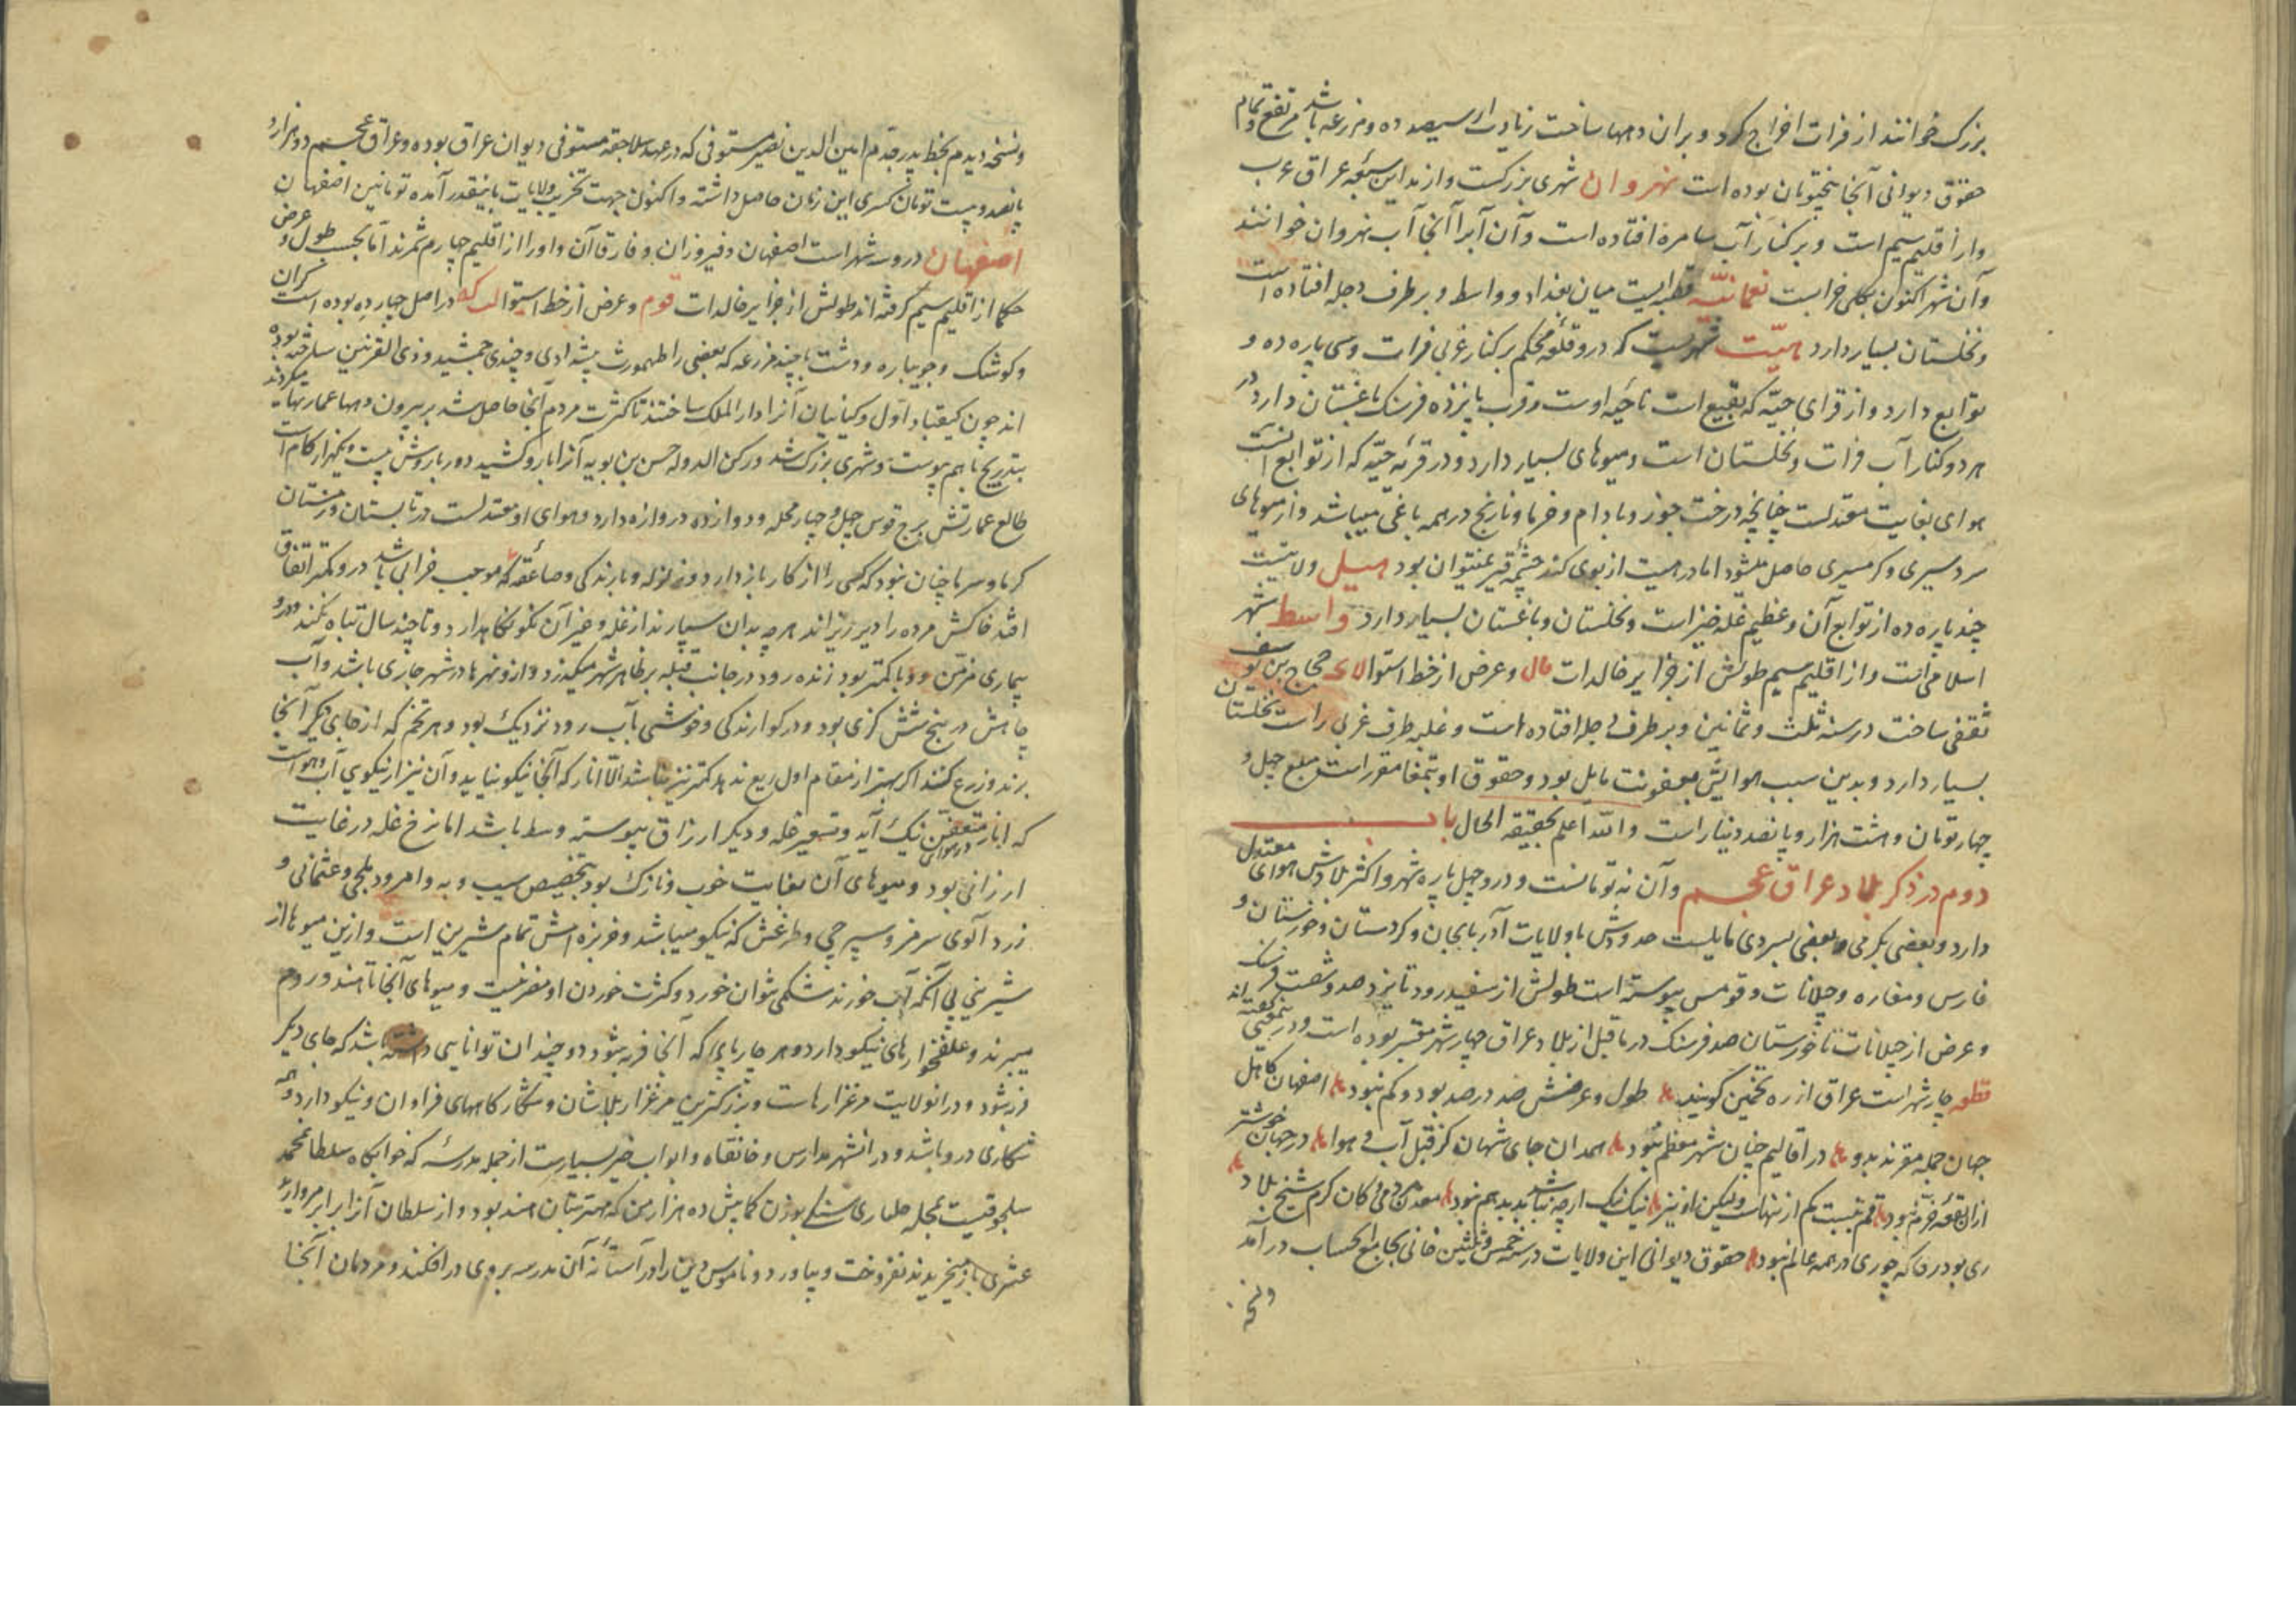 بزرک خوانند از فرات اخراج کرد و بر ان دهها ساخت زیادت از سیصد ده و مزرعه باشد مرتفع و تمام
حقوق دیوانی آنجا پنج تومان بوده است نهروان شهری بزرکست و از مداین سبعه عراق عرب
و از اقلیم سیم است و بر کنار آب سامره افتاده است و آن آبرا آنجا آب نهروان خوانند
و آن شهر اکنون بکلی خرابست نعمانیّه قصبه ایست میان بغداد و واسط و بر طرف دجله افتاده است
و نخلستان بسیار دارد هیّت شهریست که درو قلعه محکم بر کنار غربی فرات و سی پاره ده و
توابع دارد و از قرای جبّه که بقبع است ناحیه اوست و قرب پانزده فرسنک باغستان دارد در
هر دو کنار آب فرات و نخلستان است و میوهای بسیار دارد و در قریه جبّه که از توابع آنست
هوای بغایت معتدلست چنانچه درخت جوز و بادام و خرما و نارنج در همه باغی میباشد و از میوهای
سردسیری و کرمسیری حاصل میشود اما در هیت از بوی کند چشمه قیر نمیتوان بود هیل ولایتیست
چند پاره ده از توابع آن و عظیم غله خیز است و نخلستان و باغستان بسیار دارد واسط شهر
اسلامی است و از اقلیم سیم طولش از جزایر خالدات مال و عرض از خط استوا لاى حجاج بن یوسف
ثقفی ساخت در سنه ثلث و ثمانین و بر طرف دجله افتاده است و غلبه طرف غربی راست نخلستان
بسیار دارد و بدین سبب هوایش بعفونت مایل بود و حقوق او بتمغا مقرر است مبلغ چهل و
چهار تومان و هشت هزار و پانصد دینار است و الله اعلم بحقیقه الحال باب
دوم در ذکر بلاد عراق عجم و آن نه تومانست و درو چهل پاره شهر و اکثر بلادش هوای معتدل
دارد و بعضی بکرمی و بعضی بسردی مایلست حدودش با ولایات آذربایجان و کردستان و خوزستان و
فارس و مفازه و جیلانات و قومس پیوسته است طولش از سفیدرود تا یزد صد و شصت فرسنک
و عرض از جیلانات تا خوزستان صد فرسنک در ماقبل از بلاد عراق چهار شهر معتبر بوده است و در نعت کفته اند
قطعه چار شهر است عراق از ره تخمین کویند طول و عرضش صد در صد بود و کم نبود اصفهان کاهل
جهان جمله مقرند بدو در اقالیم چنان شهر معظم نبود همدان جای شهان کز قبل آب و هوا در جهان خوشتر
ازان بقعه خرّم نبود قم نسبت بکم از نهاست ولیکن او نیز نیک نیک ار چه نباشد بد بد هم نبود معدن مردمی و کان کرم شیخ بلاد
ری بود ری که چو ری در همه عالم نبود حقوق دیوانی این ولایات در سنه خمس و ثلثین خانی بجامع الحساب در آمد
و نسخه
و نسخه دیدم بخط پدر جدم امین الدین نصیر مستوفی که در عهد سلاجقه مستوفی دیوان عراق بوده و عراق عجم دو هزار و
پانصد و بیست تومان کسری این زمان حاصل داشته و اکنون جهت تخریب ولایات باینقدر آمده تومانین اصفهان
اصفهان درو سه شهر است اصفهان و فیروزان و فارقاآن و او را از اقلیم چهارم شمرند امّا بحسب طول و عرض
حکما از اقلیم سیم کرفته اند طولش از جزایر خالدات فوم و عرض از خط استوا لب که در اصل چهار ده بوده است کران
و کوشک و جوبباره و دشت با چند مزرعه که بعضی را طهمورث پیشدادی و چندی جمشید و ذی القرنین ساخته بوده
اند چون کیقباد اوّل و کیانیان آنرا دار الملک ساختند تا کثرت مردم آنجا حاصل شد بر بیرون دهها عمارتها میکردند
بتدریج باهم پیوست و شهری بزرک شد و رکن الدوله حسن بن بویه آنرا بارو کشید دور بارویش بیست و یکهزار کام است
طالع عمارتش برج قوس چهل و چهار محله و دوازده دروازه دارد و هوای او معتدلست در تابستان و زمستان
کرما و سرما چنان نبود که کسی را از کار باز دارد و زلزله و بارندکی و صاعقه که موجب خرابی باشد درو کمتر اتفاق
افتد خاکش مرده را دیر ریزاند هر چه بدان سپارند از غله و غیر آن نکو نکاهدارد و تا چند سال تباه نکند و درو
بیماری مزمن و وبا کمتر بود زنده رود در جانب قبله بر ظاهر شهر میکذرد و ازو نهرها در شهر جاری باشد و آب
چاهش در پنج شش کزی بود و در کوارندکی و خوشی بآب رود نزدیک بود و هر تخم که از جای دیکر آنجا
برند و زرع کنند اکر بهتر از مقام اول ریع ندهد کمتر نیز نباشد الّا انار که آنجا نیکو نیاید و آن نیز از نیکویی آب و هواست
که انار در هوای متعفن نیک آید و تسعیر غله و دیکر ارزاق پیوسته وسط باشد اما نرخ غله در غایت
ارزانی بود و میوهای آن بغایت خوب و نازک بود بتخصیص سیب و به و امرود بلخی و عثمانی و
زرد آلوی سرمز و سپر حی و طرغش که نیکو میباشد و خربزه اش تمام شیرین است و ازین میوها از
شیرینی بی آنکه آب خورند شکمی نتوان خورد و کثرت خوردن او مضر نیست و میوهای آنجا تا هند و روم
میبرند و علفخوارهای نیکو دارد و هر چارپای که آنجا فربه شود دو چندان توانایی داشته باشد که جای دیکر
فربه شود و در انولایت مرغزارهاست و بزرکترین مرغزار بلاشان و شکارکاههای فراوان و نیکو دارد و همه
شکاری درو باشد و در انشهر مدارس و خانقاه و ابواب خیر بسیارست از جمله مدرسه که خوابکاه سلطان محمد
سلجوقیست بمحله جلباری سنکی بوزن کمابیش ده هزار من که مهتر بتان هند بود و از سلطان آنرا برابر مروارید
عشری باز میخریدند نفروخت و بیاورد و ناموس دین را در آستانه آن مدرسه بروی در افکند و مردمان آنجا